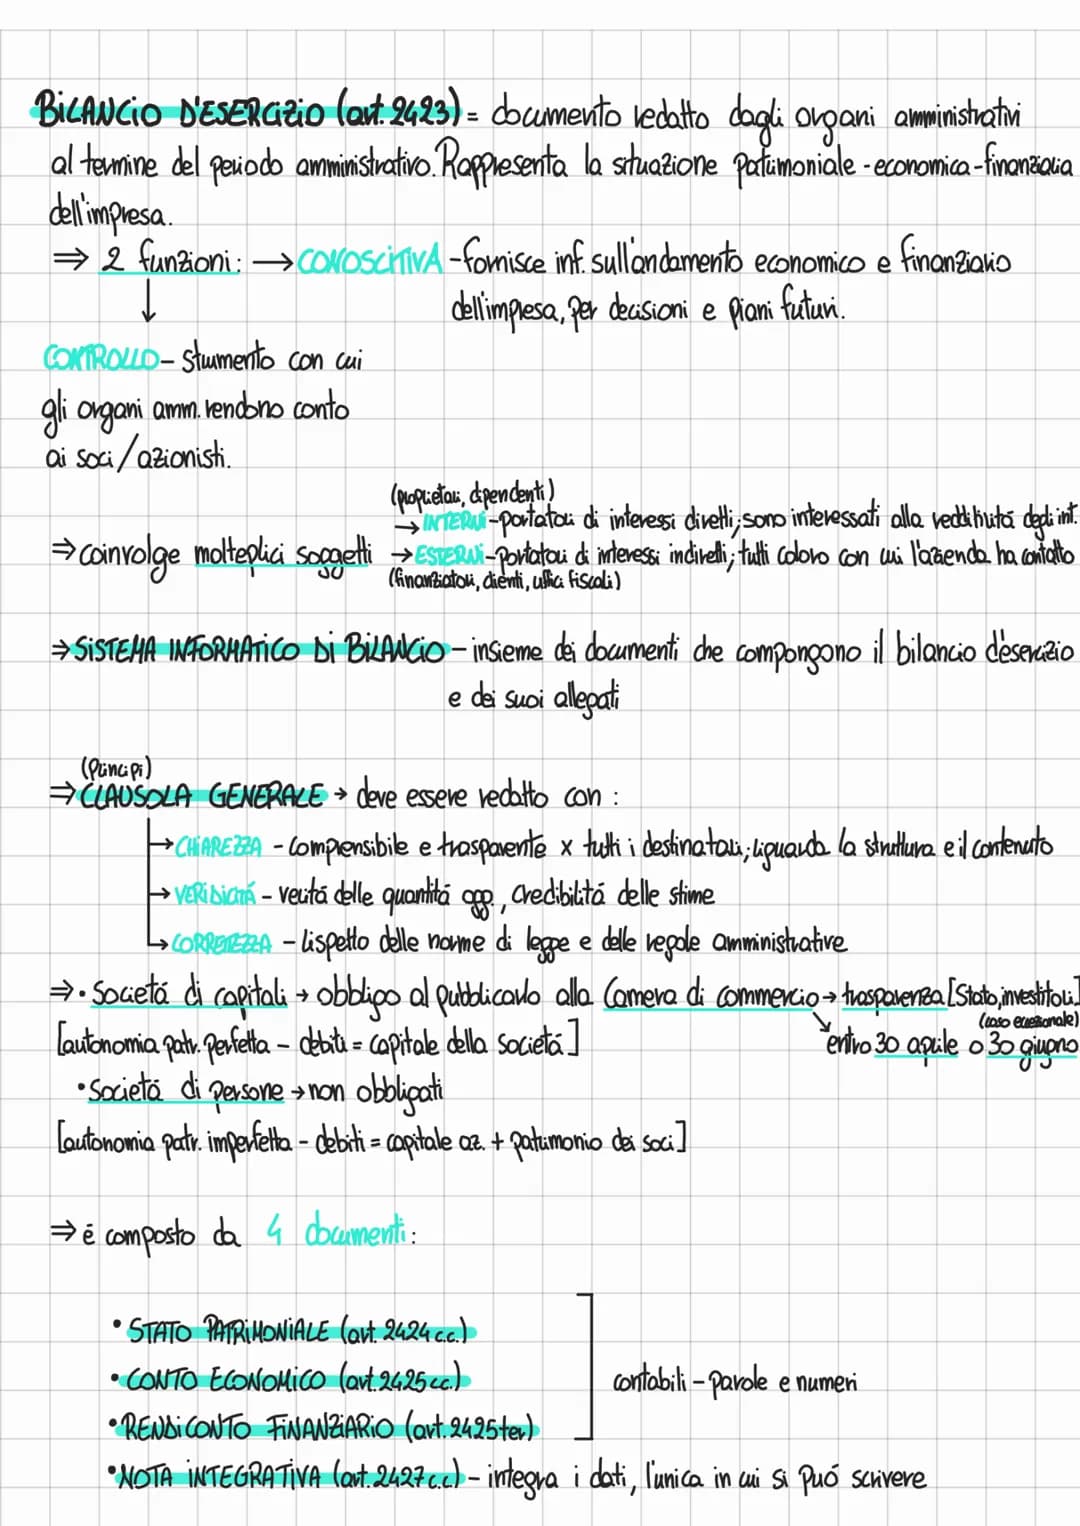 BILANCIO D'ESERCIZIO (art. 2423) = documento redatto dagli organi amministrativi
al termine del periodo amministrativo. Rappresenta la situazione patrimoniale - economica - finanziaria
dell'impresa.
⇒ 2 funzioni: → CONOSCITIVA - fornisce inf. sull'andamento economico e finanziario
↓ dell'impresa, per decisioni e piani futuri.
CONTROLLO - strumento con cui
gli organi amm. rendono conto
ai soci / azionisti.
(proprietari, dipendenti)
→ INTERNI - portatori di interessi diretti, sono interessati alla reddituitá degli int.
⇒ coinvolge molteplici soggetti → ESTERNI - portatori di interessi indiretti; tutti coloro con cui l'azienda ha contatto
(finanziatori, clienti, uffici fiscali)
⇒ SISTEMA INFORMATICO DI BILANCIO - insieme dei documenti che compongono il bilancio d'esercizio
e dei suoi allegati
(Principi)
⇒ CLAUSOLA GENERALE → deve essere redatto con :
→ CHIAREZZA - comprensibile e trasparente x tutti i destinatari; riguarda la struttura e il contenuto
→ VERIDICITÁ - veritá delle quantitá ogg., credibilitá delle stime
→ CORRETEZZA - rispetto delle norme di legge e delle regole amministrative
⇒ • Societá di capitali → obbligo al pubblicarlo alla Camera di commercio → trasparenza [Stato, investitori]
(caso eccezionale)
[autonomia patr. perfetta - debiti = capitale della societá] entro 30 aprile o 30 giugno
• Societá di persone → non obbligati
[autonomia patr. imperfetta - debiti = capitale az. + patrimonio dei soci]
⇒ é composto da 4 documenti :
• STATO PATRIMONIALE (art. 2424 c.c.)
• CONTO ECONOMICO (art. 2425 cc.) contabili - parole e numeri
• RENDICONTO FINANZIARIO (art. 2425 ter)
• NOTA INTEGRATIVA (art. 2427 c.c.) - integra i dati, l'unica in cui si puó scrivere